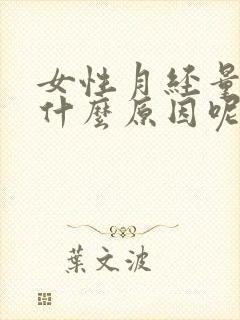 女性月经量
什麼原因呢
葉文波